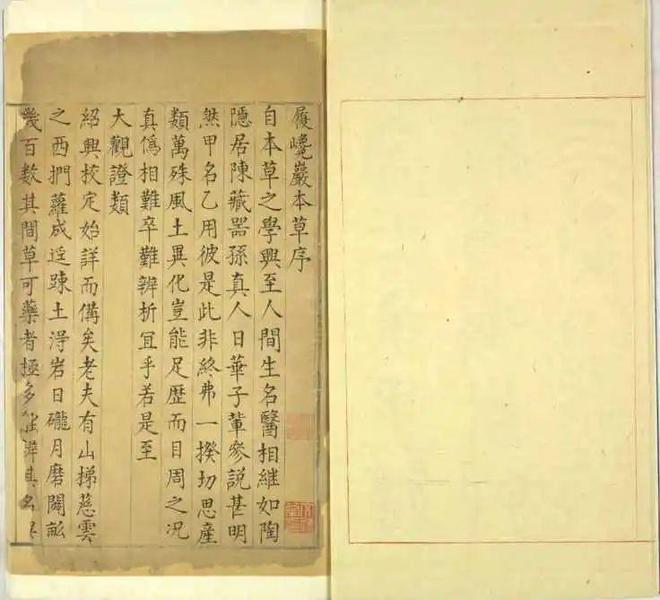 履巉巖本草序
自本草之學興至人間生名醫相繼如陶
隱居陳藏器孫真人日華子輩參說甚明
然甲名乙用彼是此非終弗一揆切思産
類萬殊風土異化豈能足歷而目周之况
真僞相難卒難辨析冝乎若是至
大觀證類
紹興校定始詳而備矣老夫有山梯慈雲
之西捫蘿成逕踈土淂岩日礲月磨闢畆
幾百数其間草可藥者極多能辨其名